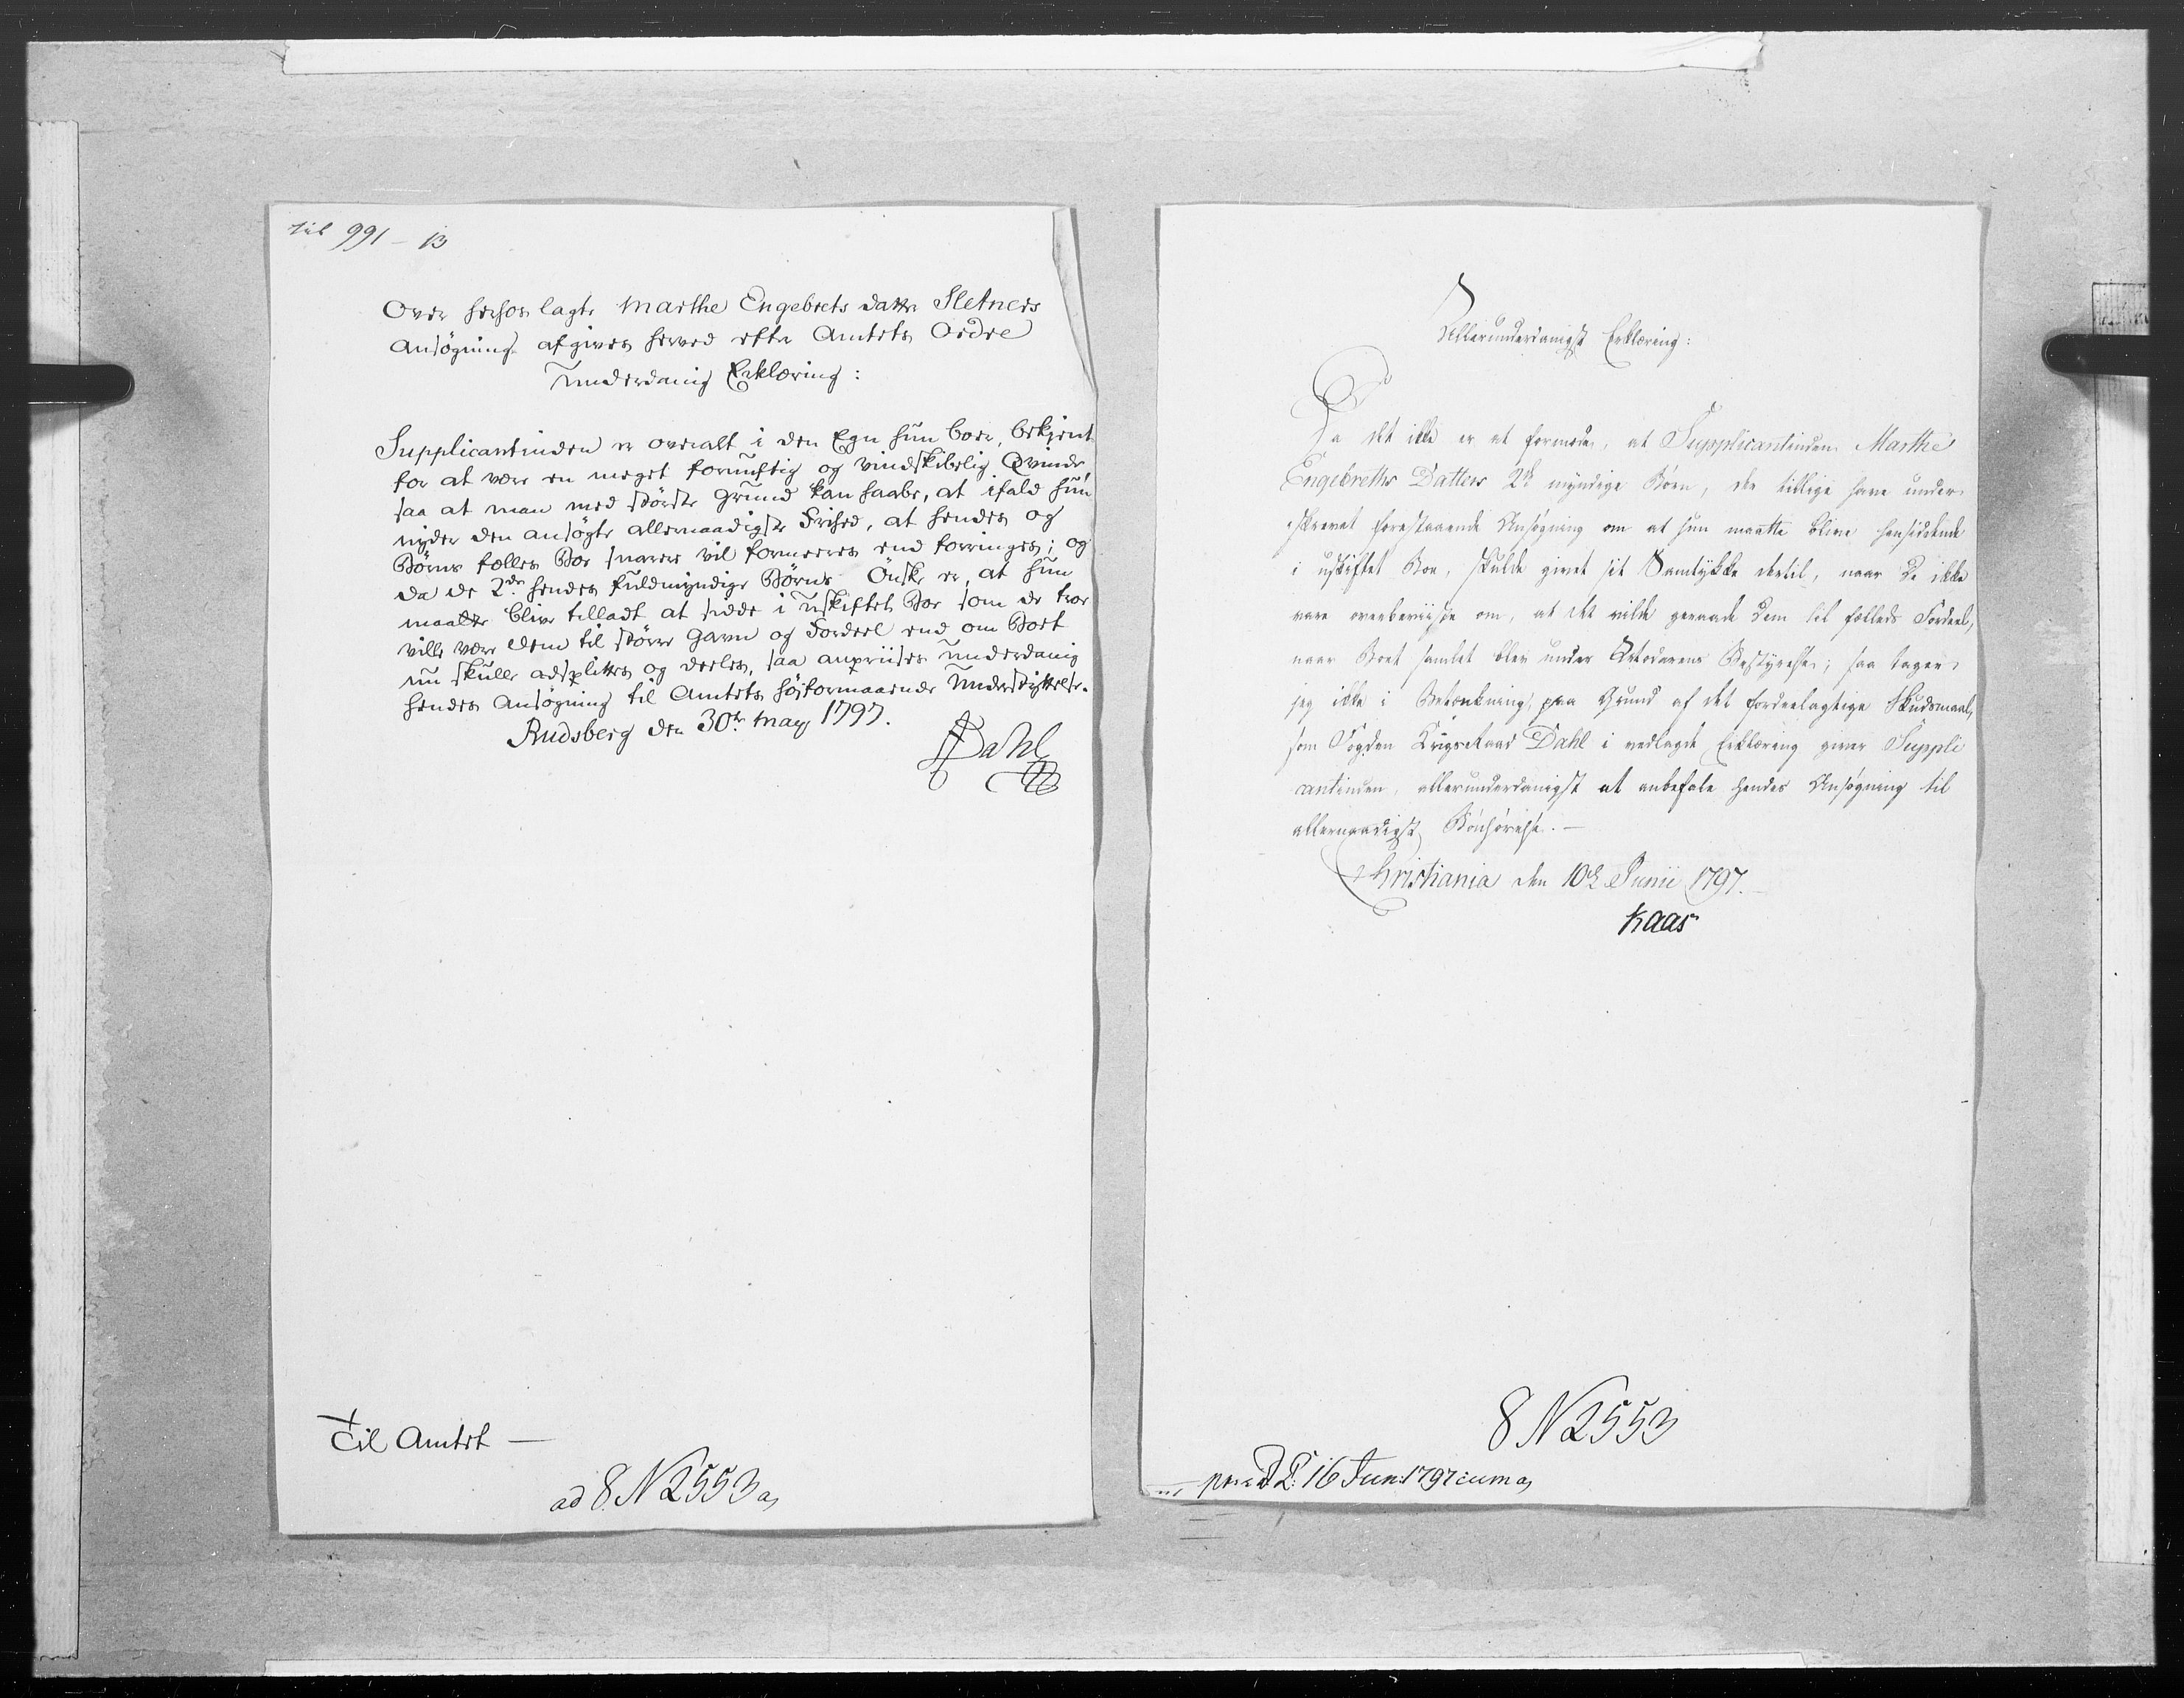 til 991 - B
Over herhos lagte Marthe Engebrets datter Sletners
Ansögning afgives herved efter Amtets Ordre
Underdanig Erklæring:
Supplicantinden er overalt i den Egn hun boer, bekjent
for at være en meget fornuftig og vindskibelig Qvinde,
saa at man med störste grund kan haabe, at ifald hun
nyder den ansögte allernaadigste Frihed, at hendes og
Börns fælles Boe snarere vil formeeres end forringes; og
da de 2de hendes fuldmyndige Börns Önske er, at hun
maatte blive tilladt at sidde i uskiftet Boe som de troe
ville være dem til större Gavn og Fordeel end om Boet
nu skulle adsplittes og deeles, saa anpriises underdanig
hendes Ansögning til Amtets höiformaaende Understöttelse.
Rudsberg den 30te May 1797.
Dahl
Til Amtet —
ad 8. N 2553 a
Allerunderdanigst Erklæring:
Da det ikke er at formode, at Supplicantinden Marthe
Engebreths Datters 2de myndige Børn, der tillige have under-
skrevet forestaaende Ansøgning om at hun maatte blive hensiddende
i uskiftet Boe, skulde givet sit Samtykke dertil, naar de ikke
vare overbeviiste om, at det vilde geraade dem til fælleds Fordeel,
naar Boet samlet blev under Moderens Bestyrelse; saa tager
jeg ikke i Betænkning, paa Grund af det fordeelagtige Skudsmaal,
som Fogden Krigsraad Dahl i vedlagde Erklæring giver Suppli
cantinden, allerunderdanigst at anbefale hendes Ansøgning til
allernaadigst Bønhørelse. —
Christiania den 10de Junii 1797.
Kaas
8 N 2553
præs. d. 16 Jun: 1797 cum a